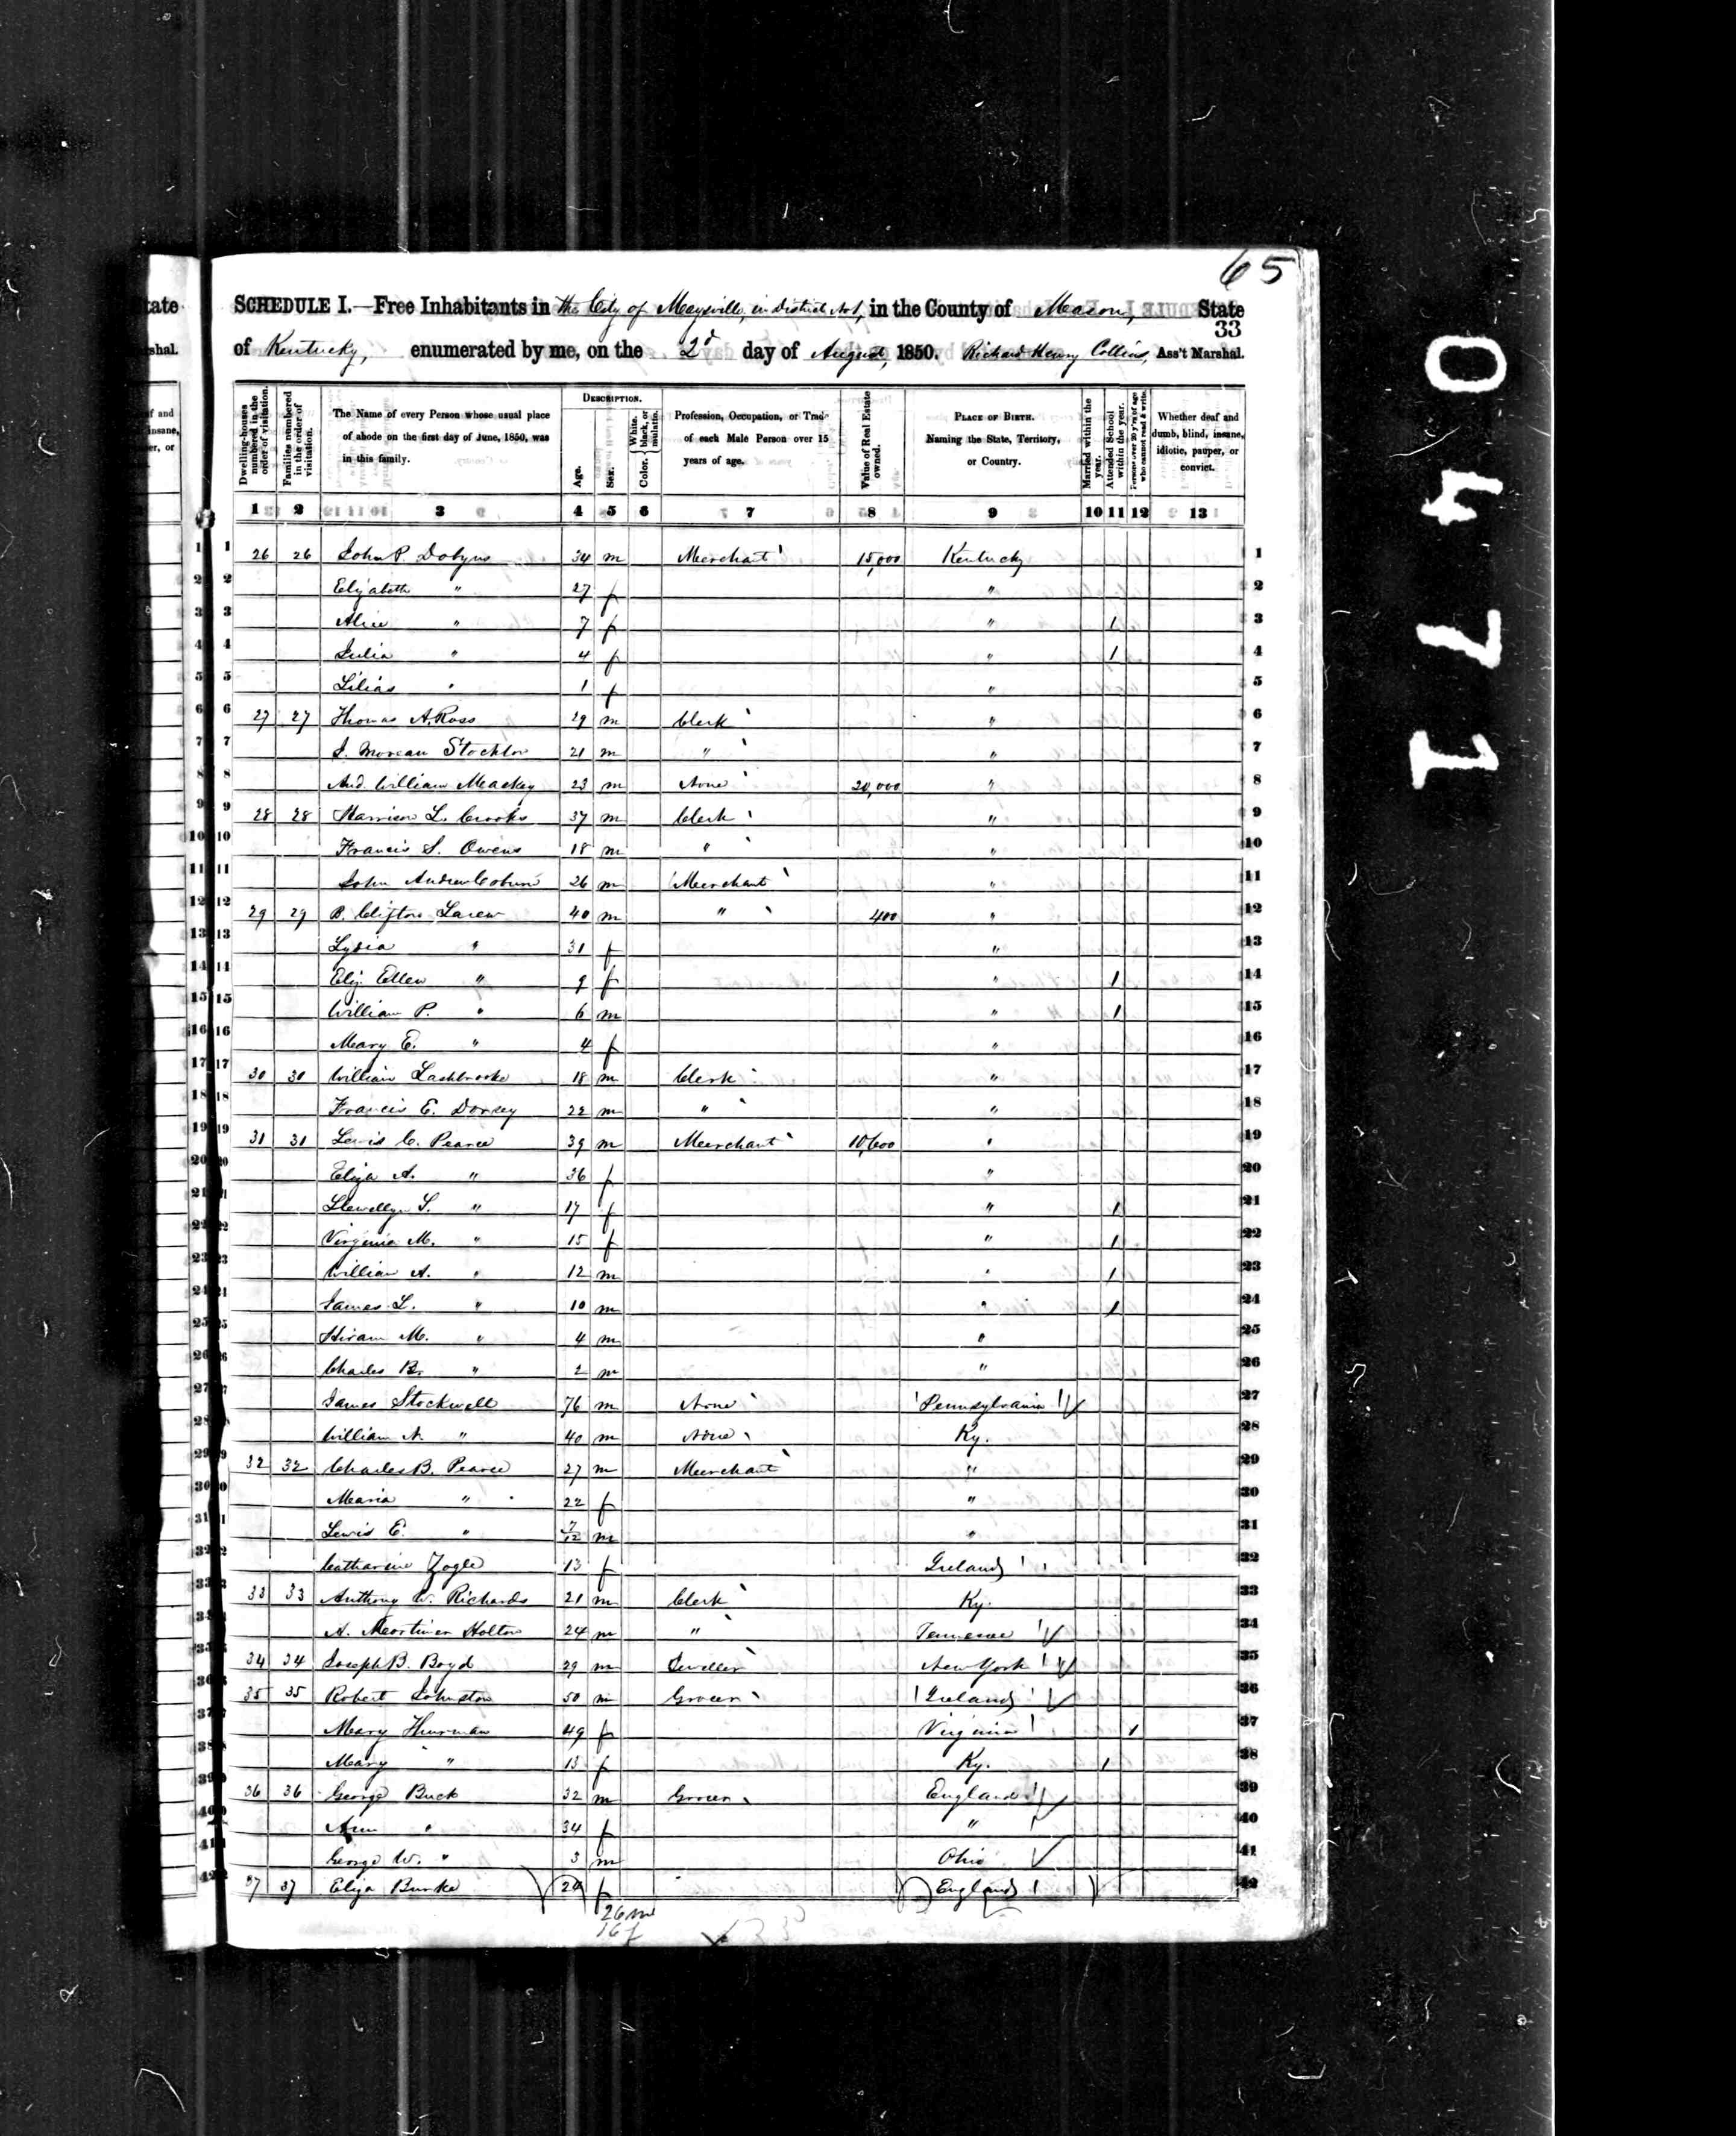 65
SCHEDULE I.—Free Inhabitants in the City of Maysville, in District No 1, in the County of Mason, State
33
of Kentucky, enumerated by me, on the 2d day of August, 1850. Richard Henry Collins, Ass't Marshal.
Dwelling-houses numbered in the order of visitation.
Families numbered in the order of visitation.
The Name of every Person whose usual place of abode on the first day of June, 1850, was in this family.
DESCRIPTION.
Age.
Sex.
Color. White, black, or mulatto.
Profession, Occupation, or Trade of each Male Person over 15 years of age.
Value of Real Estate owned.
PLACE OF BIRTH. Naming the State, Territory, or Country.
Married within the year.
Attended School within the year.
Persons over 20 y'rs of age who cannot read & write.
Whether deaf and dumb, blind, insane, idiotic, pauper, or convict.
1 2 3 4 5 6 7 8 9 10 11 12 13
1 26 26 John P. Dobyns 34 m Merchant 15,000 Kentucky 1
2 Elizabeth " 27 f " 2
3 Alice " 7 f " 1 3
4 Julia " 4 f " 1 4
5 Lilias " 1 f " 5
6 27 27 Thomas A. Ross 29 m Clerk " 6
7 J. Moreau Stockton 21 m " " 7
8 And. William Mackey 23 m None 20,000 " 8
9 28 28 Harrison L. Crooks 37 m Clerk " 9
10 Francis S. Owens 18 m " " 10
11 John Andrew Coburn 26 m Merchant " 11
12 29 29 B. Clifton Larew 40 m " 400 " 12
13 Lydia " 31 f " 13
14 Eliz. Ellen " 9 f " 1 14
15 William P. " 6 m " 1 15
16 Mary E. " 4 f " 16
17 30 30 William Lashbrooke 18 m Clerk " 17
18 Francis E. Dorsey 22 m " " 18
19 31 31 Lewis C. Pearce 39 m Merchant 10,600 " 19
20 Eliza A. " 36 f " 20
21 Llewellyn S. " 17 f " 1 21
22 Virginia M. " 15 f " 1 22
23 William A. " 12 m " 1 23
24 James L. " 10 m " 1 24
25 Hiram M. " 4 m " 25
26 Charles B. " 2 m " 26
27 James Stockwell 76 m None Pennsylvania 27
28 William N. " 40 m None Ky. 28
29 32 32 Charles B. Pearce 27 m Merchant " 29
30 Maria " 22 f " 30
31 Lewis E. " 7/12 m " 31
32 Catharine Zogle 13 f Ireland 32
33 33 33 Anthony W. Richards 21 m Clerk Ky. 33
34 A. Mortimer Holton 24 m " Tennessee 34
35 34 34 Joseph B. Boyd 29 m Jeweller New York 35
36 35 35 Robert Johnston 50 m Grocer Ireland 36
37 Mary Thurman 49 f Virginia 1 37
38 Mary " 13 f Ky. 1 38
39 36 36 George Buck 32 m Grocer England 39
40 Ann " 34 f " 40
41 George W. " 3 m Ohio 41
42 37 37 Eliza Burke 24 f England 42
26 m
16 f
0471